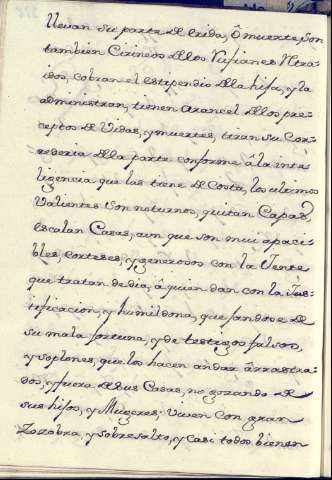 llevan su parte de erida, ô muerte, son
tambien Cirineos de los Rufianes Retra-
idos, cobran el estipendio de la hija, y la
administran, tienen arancel de los pre-
ceptos de Vidas, y muertes, tiran su Cor-
reduria de la parte conforme â la inte-
ligencia que las tiene de Costa, los ultimos
Valientes son noturnos, quitan Capas,
escalan Casas, aun que son mui apaci-
bles, corteses, y generosos con la Jente
que tratan de dia, â quien dan con la Jus-
tificacion, y humildona, quejandose de
su mala fortuna, y de testigos falsos,
y soplones, que los hacen andar arrastra-
dos, y fuera de sus Casas, no gozando de
sus hijos, y Mugeres: viven con gran
Zozobra, y sobresalto, y casi todos bienen